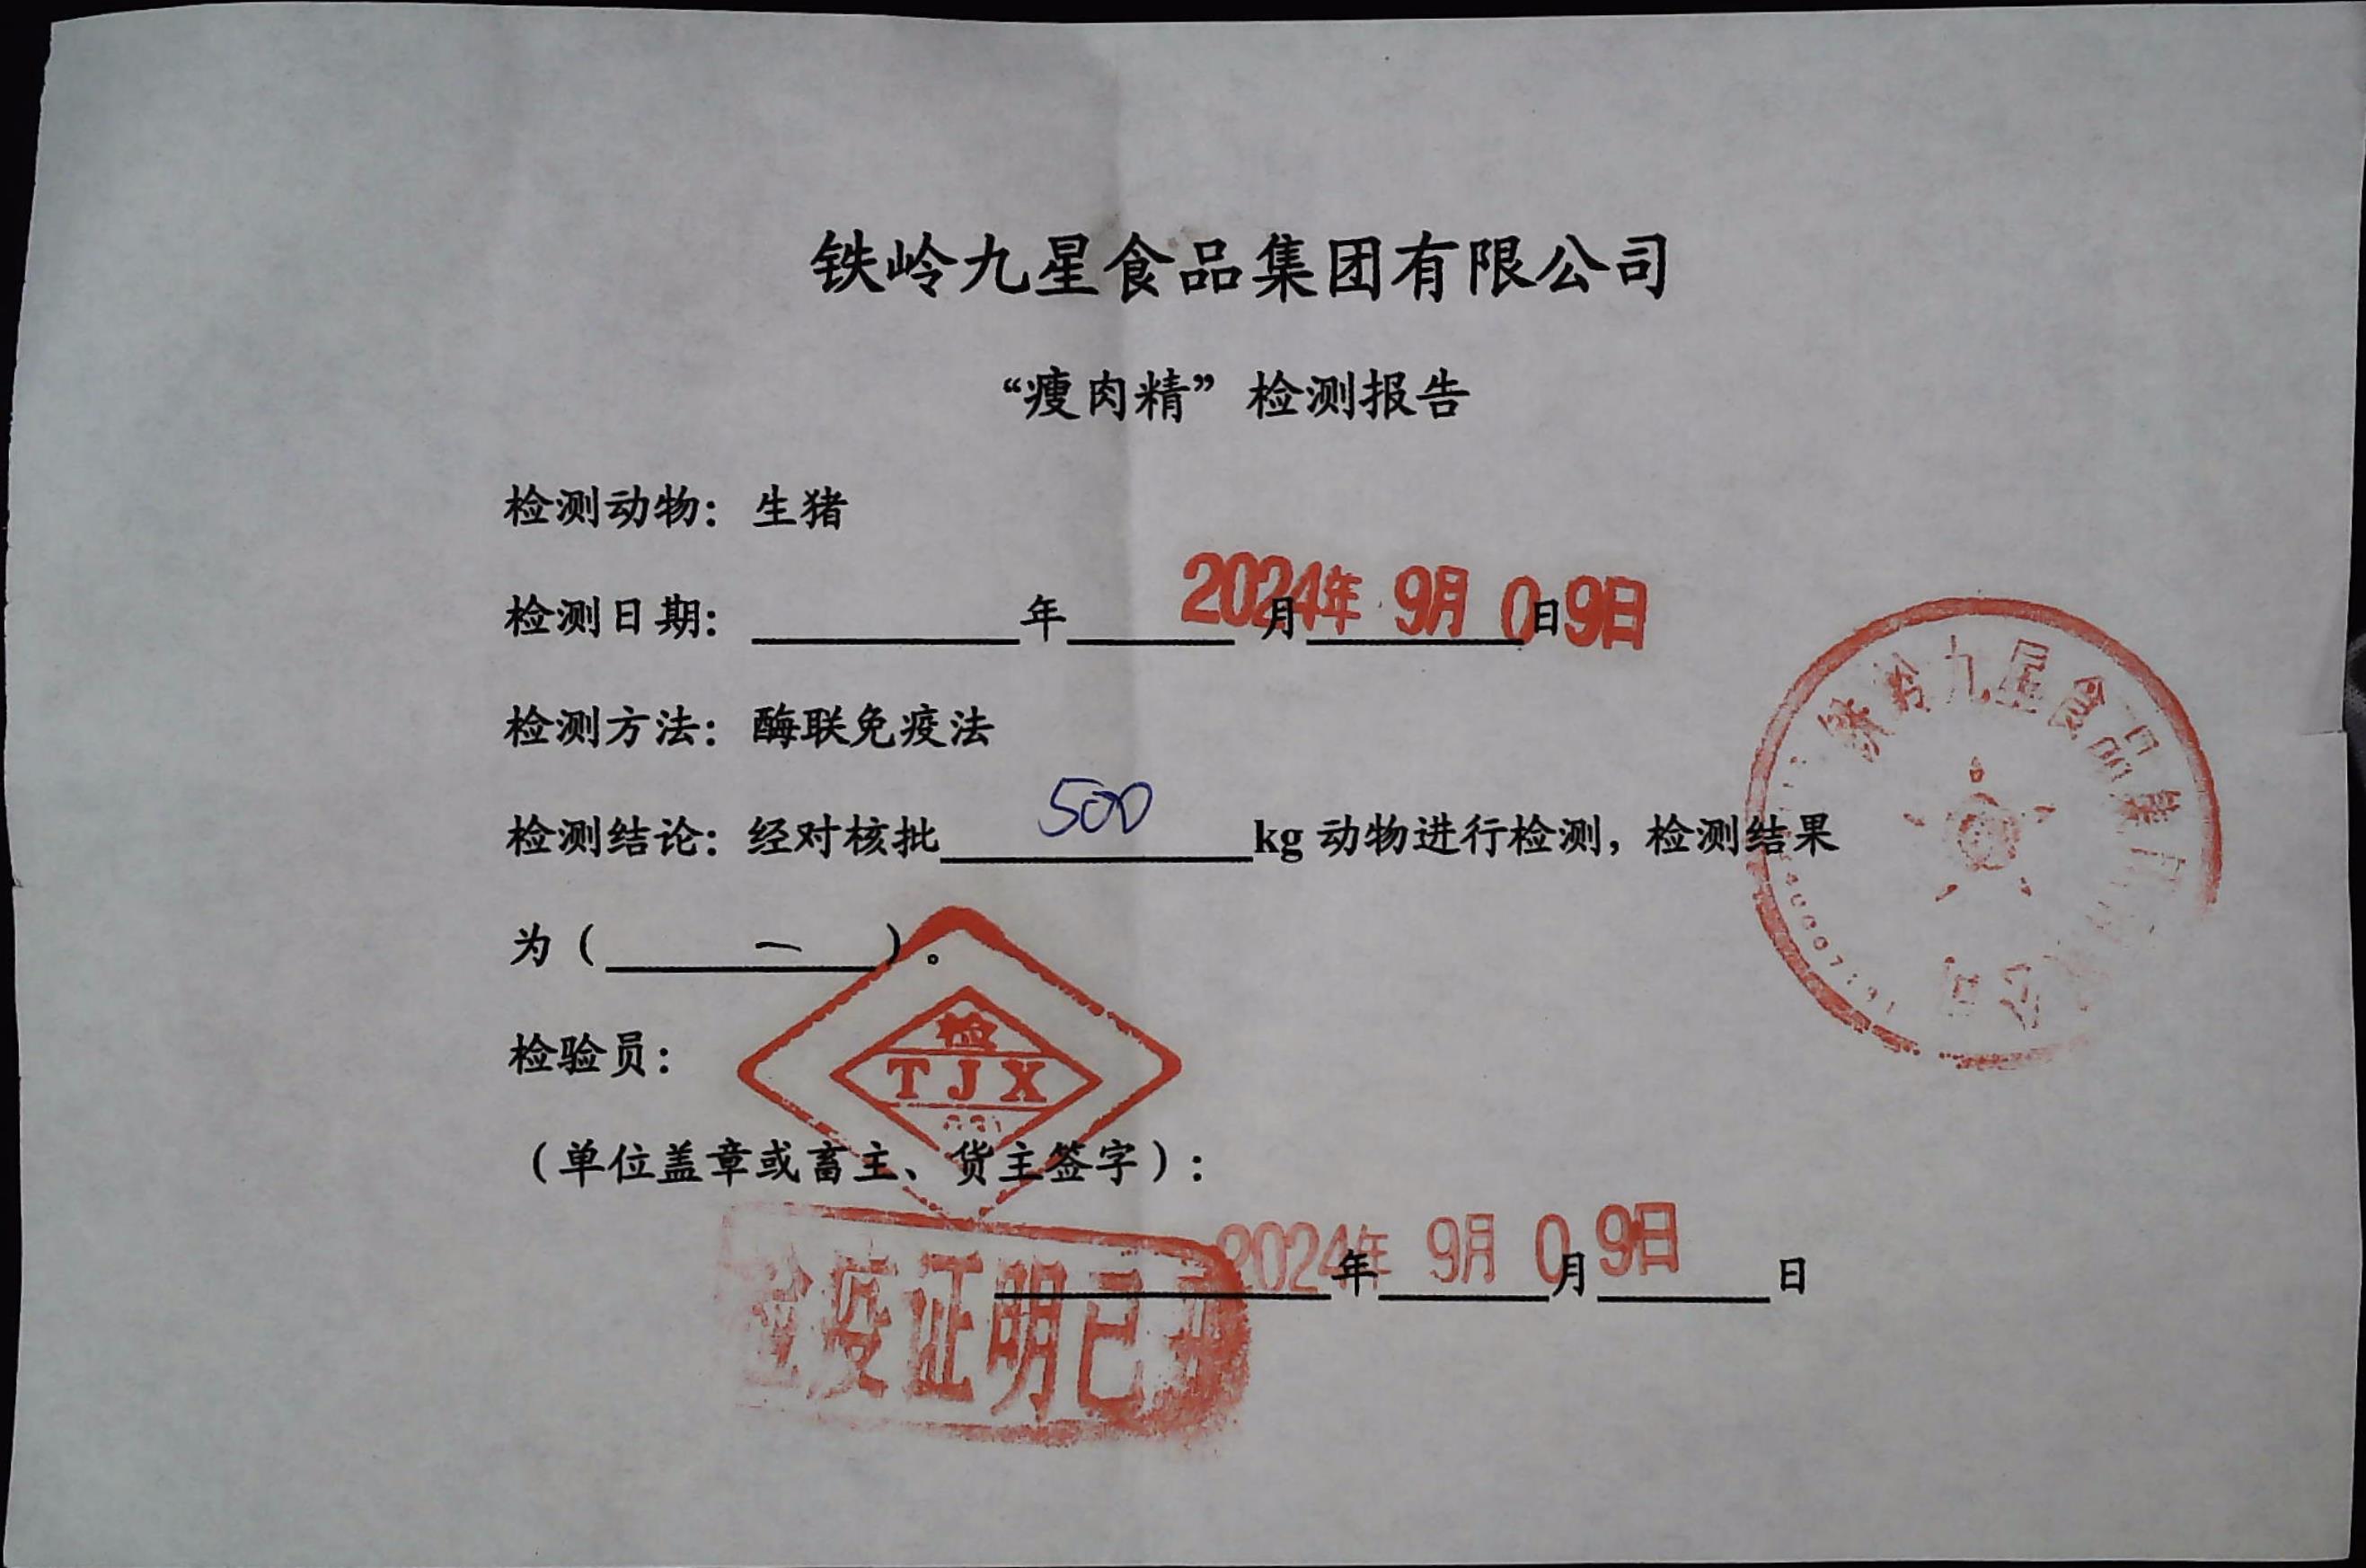 铁岭九星食品集团有限公司
“瘦肉精”检测报告
检测动物：生猪
检测日期：____年____月____日
2024年 9月 09日
检测方法：酶联免疫法
检测结论：经对核批 500 kg 动物进行检测，检测结果
为（ — ）。
检验员：
检
TJX
（单位盖章或畜主、货主签字）：
____年____月____日
2024年 9月 09日
检疫证明已
铁岭九星食品集
公司